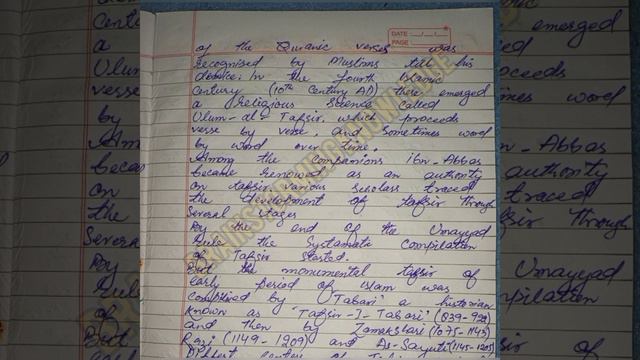 DATE: __/__/__
PAGE
of the Quranic verses was
recognised by Muslims till his
in the fourth Islamic
Century (10th Century AD) there emerged
a religious Science called
Ulum-al-Tafsir, which proceeds
verse by verse, and Sometimes word
by word over time.
Among the Companions ibn-Abbas
became renowed as an authority
on tafsir. various scholars traced
the development of tafsir through
Several stages
By the end of the Umayyad
Rule the Systematic Compilation
of Tafsir started.
But the monumental tafsir of
early period of islam was
Compiled by 'Tabari' a historian
known as 'Tafsir-I-Tabari' (839-922)
and then by Zamakshari (1075-1143)
Razi (1149-1209) and As-Sayuti (1445-1505)